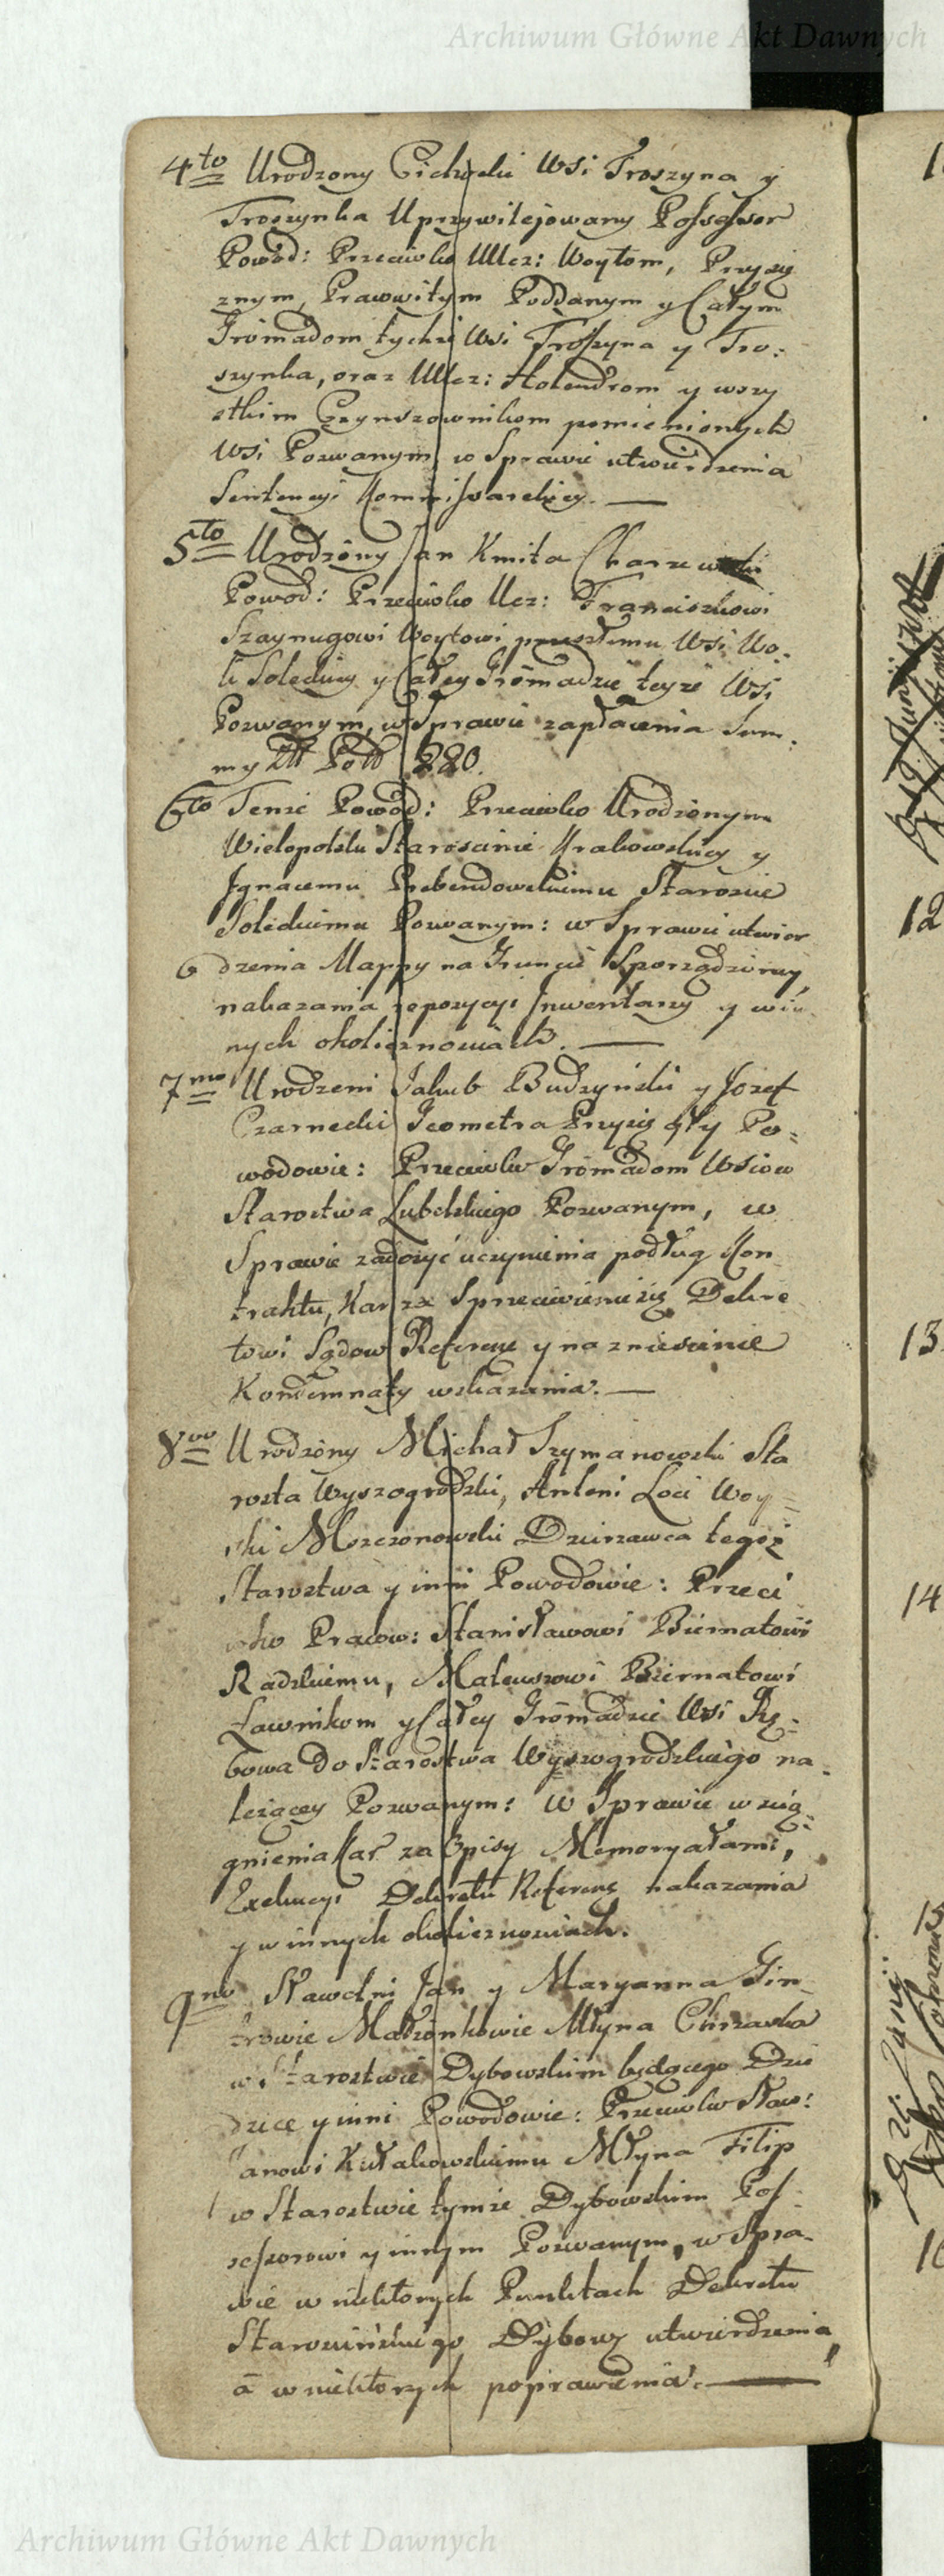 Archiwum Główne Akt Dawnych
4to Urodzony Cichocki Wsi Troszyna y
Troszynka Uprzywilejowany Possessor
Powod: Przeciwko Ucz: Woytom, Przysię
znym, Prawowitym Poddanym y Całym
Gromadom tychże Wsi Troszyna y Tro:
szynka, oraz Ucz: Holendrom y wszy
stkim Czynszownikom pomienionych
Wsi Pozwanym, w Sprawie utwierdzenia
Sentencyi Kommissarskiey.
5to Urodzony Jan Kmita
Powod: Przeciwko Ucz: Franciszkowi
Szaynugowi Woytowi przeszłemu Wsi Wo:
li Soleckiey y Całey Gromadzie teyże Wsi
Pozwanym, w Sprawie zapłacenia Sum:
my Złt Pols 220.
6to Tenże Powod: Przeciwko Urodzonym
Wielopolsku Starościnie Krakowskiey y
Ignacemu Prebendowskiemu Staroście
Soleckiemu Pozwanym: w Sprawie utwier
dzenia Mappy na Gruncie Sporządzoney,
nakazania repozycyi Inwentarzy y w in
nych okolicznościach.
7mo Urodzeni Jakub Budzyński y Jozef
Czarnecki Geometra Przysięgły Po:
wodowie: Przeciwko Gromadom Wsiow
Starostwa Pozwanym, w
Sprawie zadosyć uczynienia podług Kon
traktu, Kar za Sprzeciwienie się Dekre
towi Sądow Referen: y na zniesienie
Kondemnaty wskazania.
8vo Urodzony Michał Szymanowski Sta
rosta Wyszogrodzki, Antoni Loci Woy=
ski Mszczonowski Dzierzawca tegoż
Starostwa y inni Powodowie: Przeci
wko Pracow: Stanisławowi Biernatowi
Radzkiemu, Mateuszowi Biernatowi
Ławnikom y Całey Gromadzie Wsi Rę=
bowa do Starostwa Wyszogrodzkiego na=
leżącey Pozwanym: w Sprawie wzcią=
gnienia Kar za Spisy Memoryałami,
Exekucyi Dekretu Referens nakazania
y w innych okolicznościach.
9no Sławetni Jan y Maryanna Gin
trowie Małżonkowie Młyna Chrzastka
w Starostwie Dybowskim będącego Dzie
dzice y inni Powodowie: Przeciwko Sław:
Janowi Kułakowskiemu Młyna Filip
w Starostwie tymże Dybowskim Pos=
sessorowi y innym Pozwanym, w Spra=
wie w niektorych Punktach Dekretu
Starościńskiego Dybow: utwierdzenia,
a w niektorych poprawienia.
12
13
14
Archiwum Główne Akt Dawnych